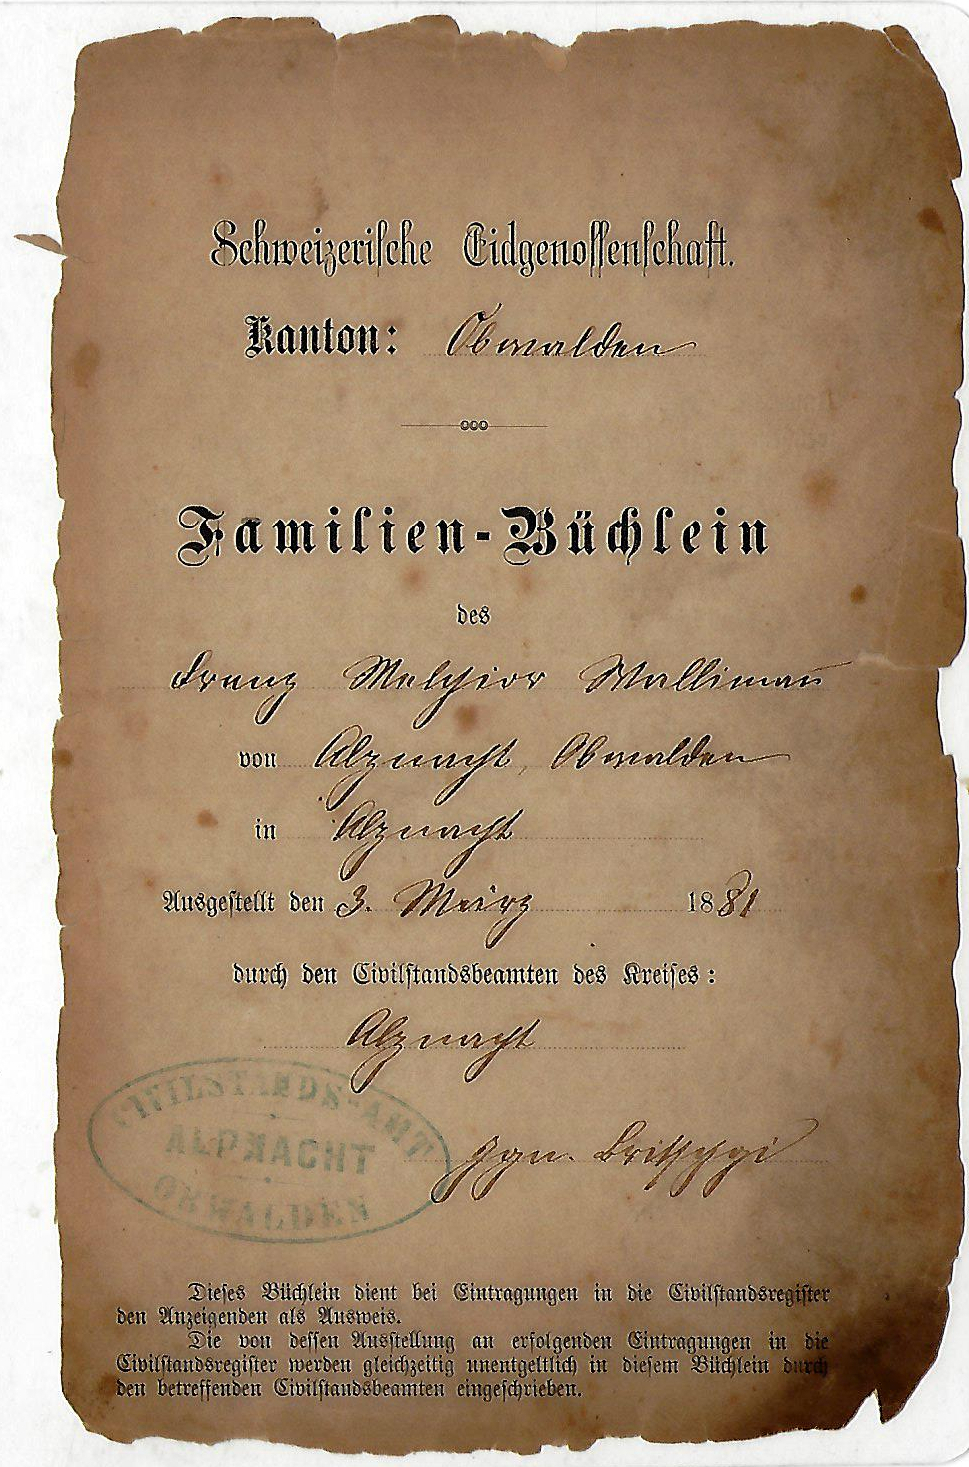 Schweizerische Eidgenossenschaft.
Kanton: Obwalden
Familien-Büchlein
des
Franz Melchior Wallimañ
von Alpnacht, Obwalden
in Alpnacht
Ausgestellt den 3. März 1881
durch den Civilstandsbeamten des Kreises:
Alpnacht
CIVILSTANDS-AMT
ALPNACHT
OBWALDEN
Ign. Britschgi
Dieses Büchlein dient bei Eintragungen in die Civilstandsregister
den Anzeigenden als Ausweis.
Die von dessen Ausstellung an erfolgenden Eintragungen in die
Civilstandsregister werden gleichzeitig unentgeltlich in diesem Büchlein durch
den betreffenden Civilstandsbeamten eingeschrieben.